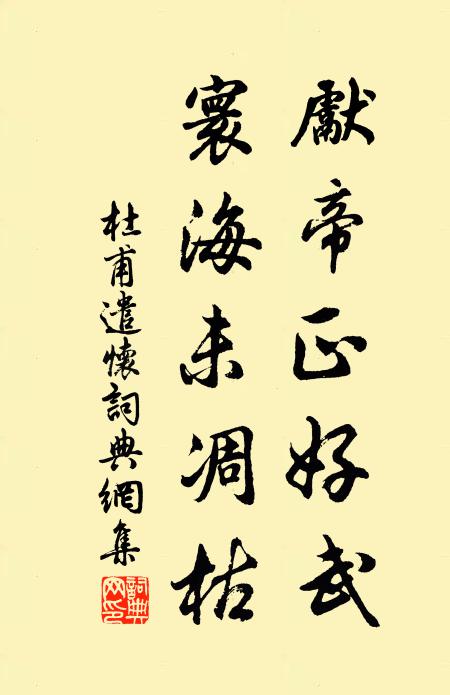 獻帝正好武
寰海未凋枯
杜甫遣懷詞典網集
詞典网印